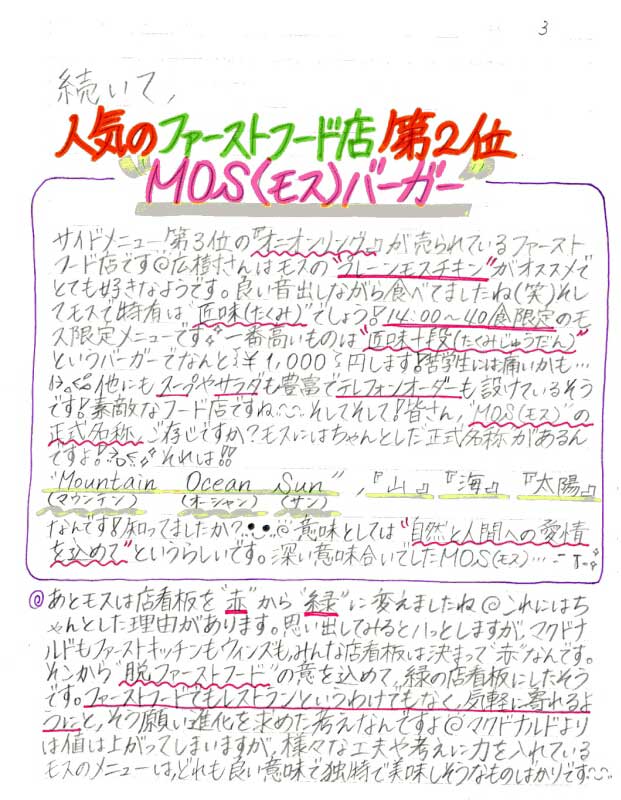 3
続いて,
人気のファーストフード店!第2位
MOS(モス)バーガー
サイドメニュー第3位の『オニオンリング』が売られているファースト
フード店です@広樹さんはモスの"グリーンモスチキン"がオススメで
とても好きなようです。良い音出しながら食べてましたね(笑)そし
てモスで特有は"匠味(たくみ)"でしょう!14:00〜40食限定のモ
ス限定メニューです。一番高いものは"匠味十段(たくみじゅうだん)"
というバーガーでなんと¥1,000円します!苦学生には痛いかも…
他にもスープやサラダも豊富でテレフォンオーダーも設けているそう
です!素敵なフード店ですね〜〜。そしてそして!皆さん,"MOS(モス)"の
正式名称,ご存じですか?モスにはちゃんとした正式名称があるん
ですよ! それは!!
"Mountain Ocean Sun",『山』『海』『太陽』
(マウンテン) (オーシャン) (サン)
なんです!知ってましたか? @意味としては"自然と人間への愛情
を込めて"というらしいです。深い意味合いでしたMOS(モス)…
@あとモスは店看板を"赤"から"緑"に変えましたね@これにはち
ゃんとした理由があります。思い出してみるとハッとしますが,マクドナ
ルドもファーストキッチンもウィンスも,みんな店看板は決まって"赤"なんです。
そこから"脱ファーストフード"の意を込めて,緑の店看板にしたそう
です。ファーストフードでもレストランというわけでもなく,気軽に寄れるよ
うにと,そう願い進化を求めた考えなんですよ@マクドナルドより
は値は上がってしまいますが,様々な工夫や考えに力を入れている
モスのメニューは,どれも良い意味で独特で美味しそうなものばかりです〜〜